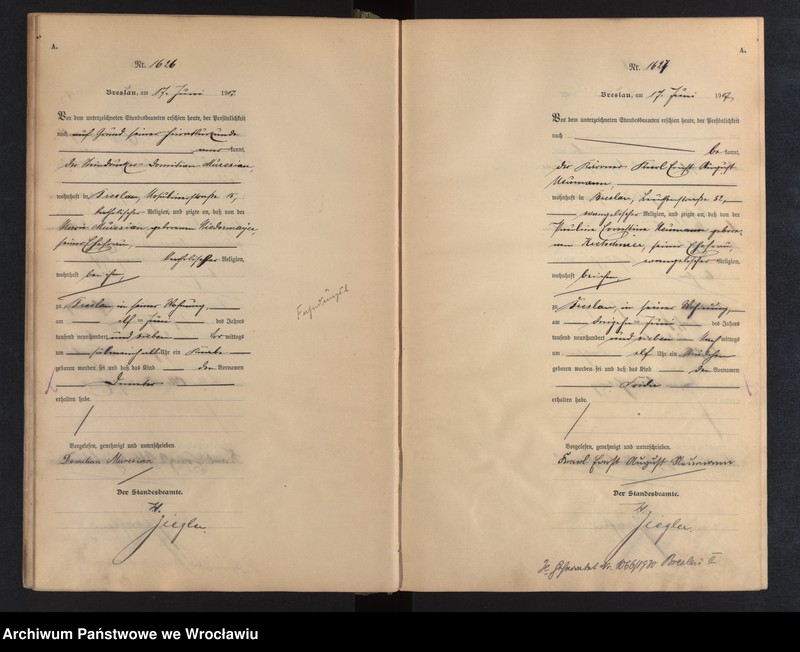 A.
Nr. 1626
Breslau, am 17. Juni 1907.
Vor dem unterzeichneten Standesbeamten erschien heute, der Persönlichkeit
nach auf Grund seiner Heiratsurkunde
aner kannt,
der Steindrucker Domitian Muresian,
wohnhaft in Breslau,
katholischer Religion, und zeigte an, daß von der
Maria Muresian, geborenen
seiner Ehefrau,
katholischer Religion,
wohnhaft bei ihm,
zu Breslau in seiner Wohnung,
am elf ten Juni des Jahres
tausend neunhundert und sieben Vor mittags
um Uhr ein Knabe
geboren worden sei und daß das Kind den Vornamen
erhalten habe.
Vorgelesen, genehmigt und unterschrieben.
Domitian Muresian
Der Standesbeamte.
Ziegler.
A.
Nr. 1627
Breslau, am 17. Juni 1907.
Vor dem unterzeichneten Standesbeamten erschien heute, der Persönlichkeit
nach
be kannt,
der Karl Ernst August
Neumann,
wohnhaft in Breslau, 52,
evangelischer Religion, und zeigte an, daß von der
Pauline Ernestine Neumann gebore-
nen seiner Ehefrau,
evangelischer Religion,
wohnhaft bei ihm,
zu Breslau, in seiner Wohnung,
am dreizehn ten Juni des Jahres
tausend neunhundert und sieben Nach mittags
um elf Uhr ein Mädchen
geboren worden sei und daß das Kind den Vornamen
Frida
erhalten habe.
Vorgelesen, genehmigt und unterschrieben.
Karl Ernst August Neumann
Der Standesbeamte.
Ziegler.
Breslau II
Archiwum Państwowe we Wrocławiu